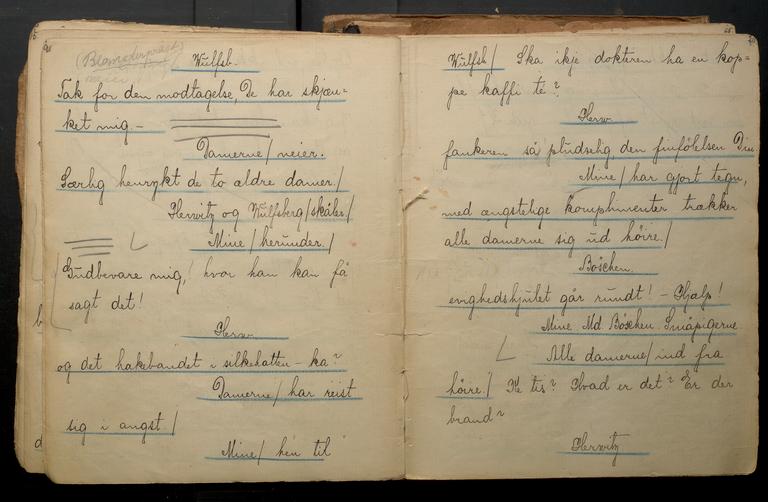 (Blomsterpragt)
neier
Wulfsb.
Tak for den modtagelse, De har skjæn-
ket mig. —
Damerne / neier.
Særlig henrykt de to ældre damer. /
Herwitz og Wulfsberg / skåler /
Mine / herunder. /
Gudbevare mig, ! hvor han kan få
sagt det!
Herw.
og det hakebandet i silkehatten — ka?
Damerne / har reist
sig i angst /
Mine / hen til
Wulfsb / Ska ikje dokteren ha en kop-
pe kaffi te?
Herw.
fankeren så pludselig den finfölelsen Din
Mine / har gjort tegn,
med ængstelige komplimenter trækker
alle damerne sig ud höire. /
Böschen.
evighedshjulet går rundt! — Hjælp!
Mine Md. Böschen. Småpigerne
Alle damerne / ind fra
höire. / Ke tis? Hvad er det? Er der
brand?
Herwitz